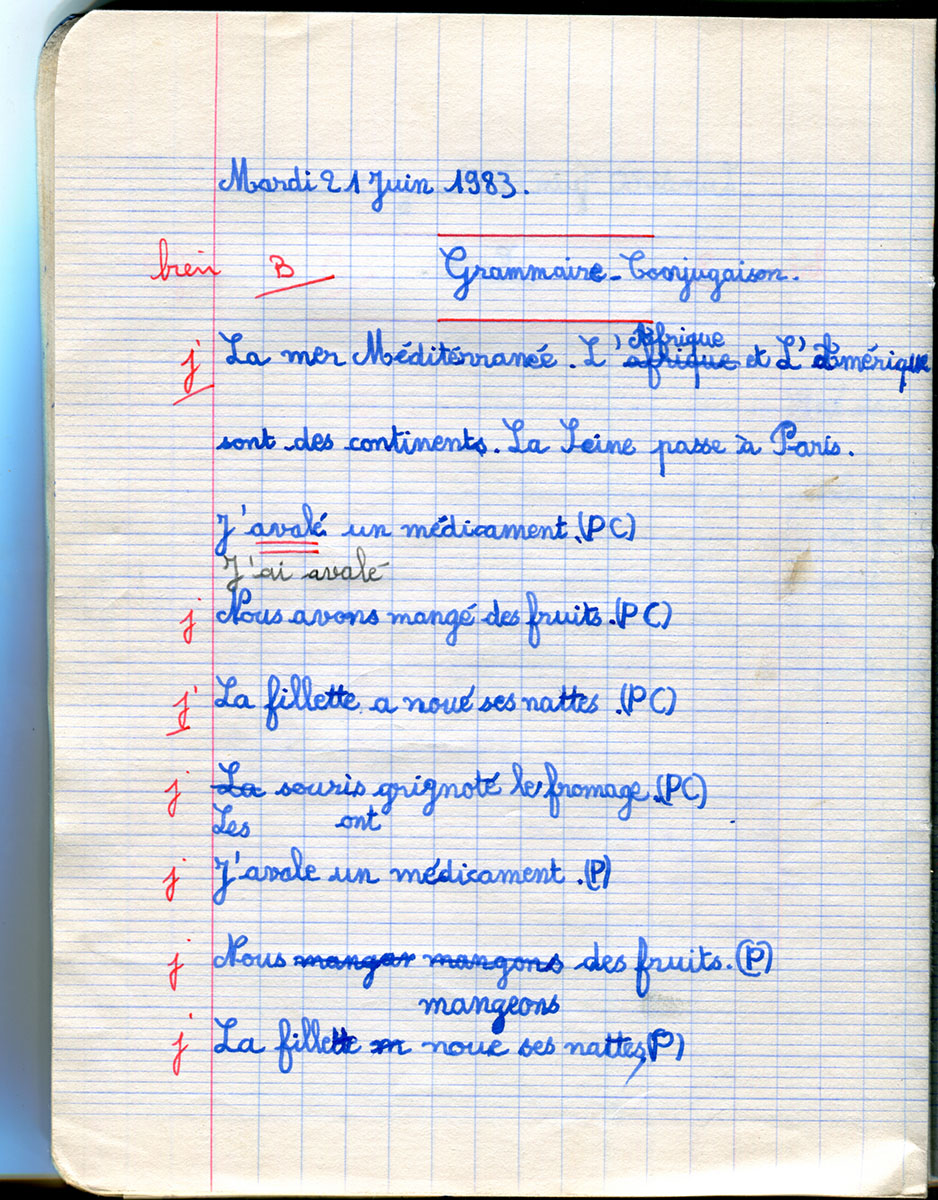 Mardi 21 Juin 1983.
bien B Grammaire-Conjugaison.
Afrique
j La mer Méditérranée. L'afrique et L'Amérique
sont des continents. La Seine passe à Paris.
J'avalé un médicament.(PC)
J'ai avalé
j Nous avons mangé des fruits.(PC)
j La fillette a noué ses nattes.(PC)
j La souris grignoté le fromage.(PC)
Les ont
j J'avale un médicament.(P)
j Nous mangar mangons des fruits.(P)
mangeons
j La fillette m noue ses nattes,(P)